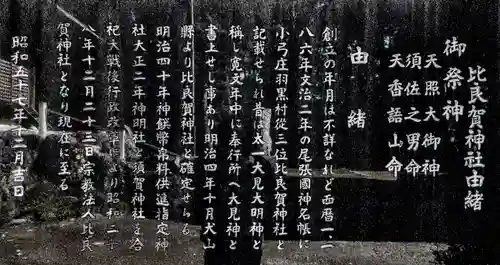 比良賀神社由緒
御祭神
天照大御神
須佐之男命
天香語山命
由緒
創立の年月は不詳なれど西暦一、一
八六年文治二年の尾張國神名帳に
小弓庄羽黒村従三位比良賀神社と
記載せられ昔は太一大見大明神と
称し寛文年中に奉行所へ大見神と
書上せし事あり明治四年十月犬山
縣より比良賀神社と確定せらる
明治四十年神饌幣帛料供進指定神
社大正二年神明社と須賀神社を合
祀大戦後行政改革により昭和二十
八年十二月二十三日宗教法人比良
賀神社となり現在に至る
昭和五十七年十二月吉日